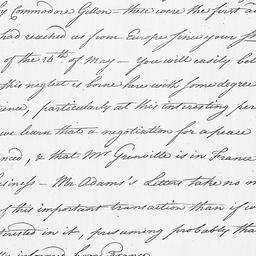 by Commodore Gillon – these were the first ad
had reached us from Europe since your
of the 14th of May – You will easily bel
this neglect is borne here with some degree
ience, particularly at this interesting per
we learn that a negotiation for a peace
nced, & that Mr Grenville is in France
usiness – Mr Adams's Letters take no n
of this important transaction than if w
terested in it, presuming probably tha
informed from France